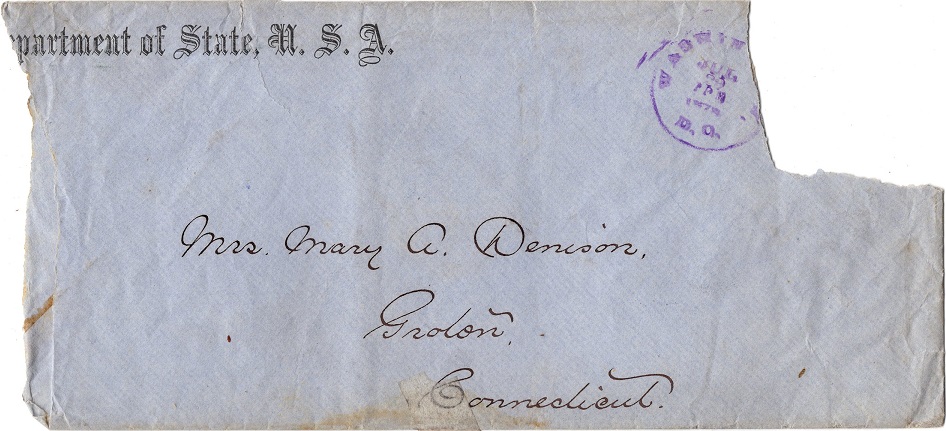 partment of State, U. S. A.
WASHIN
JUL
30
1 PM
D. C.
Mrs. Mary A. Denison,
Groton,
Connecticut.